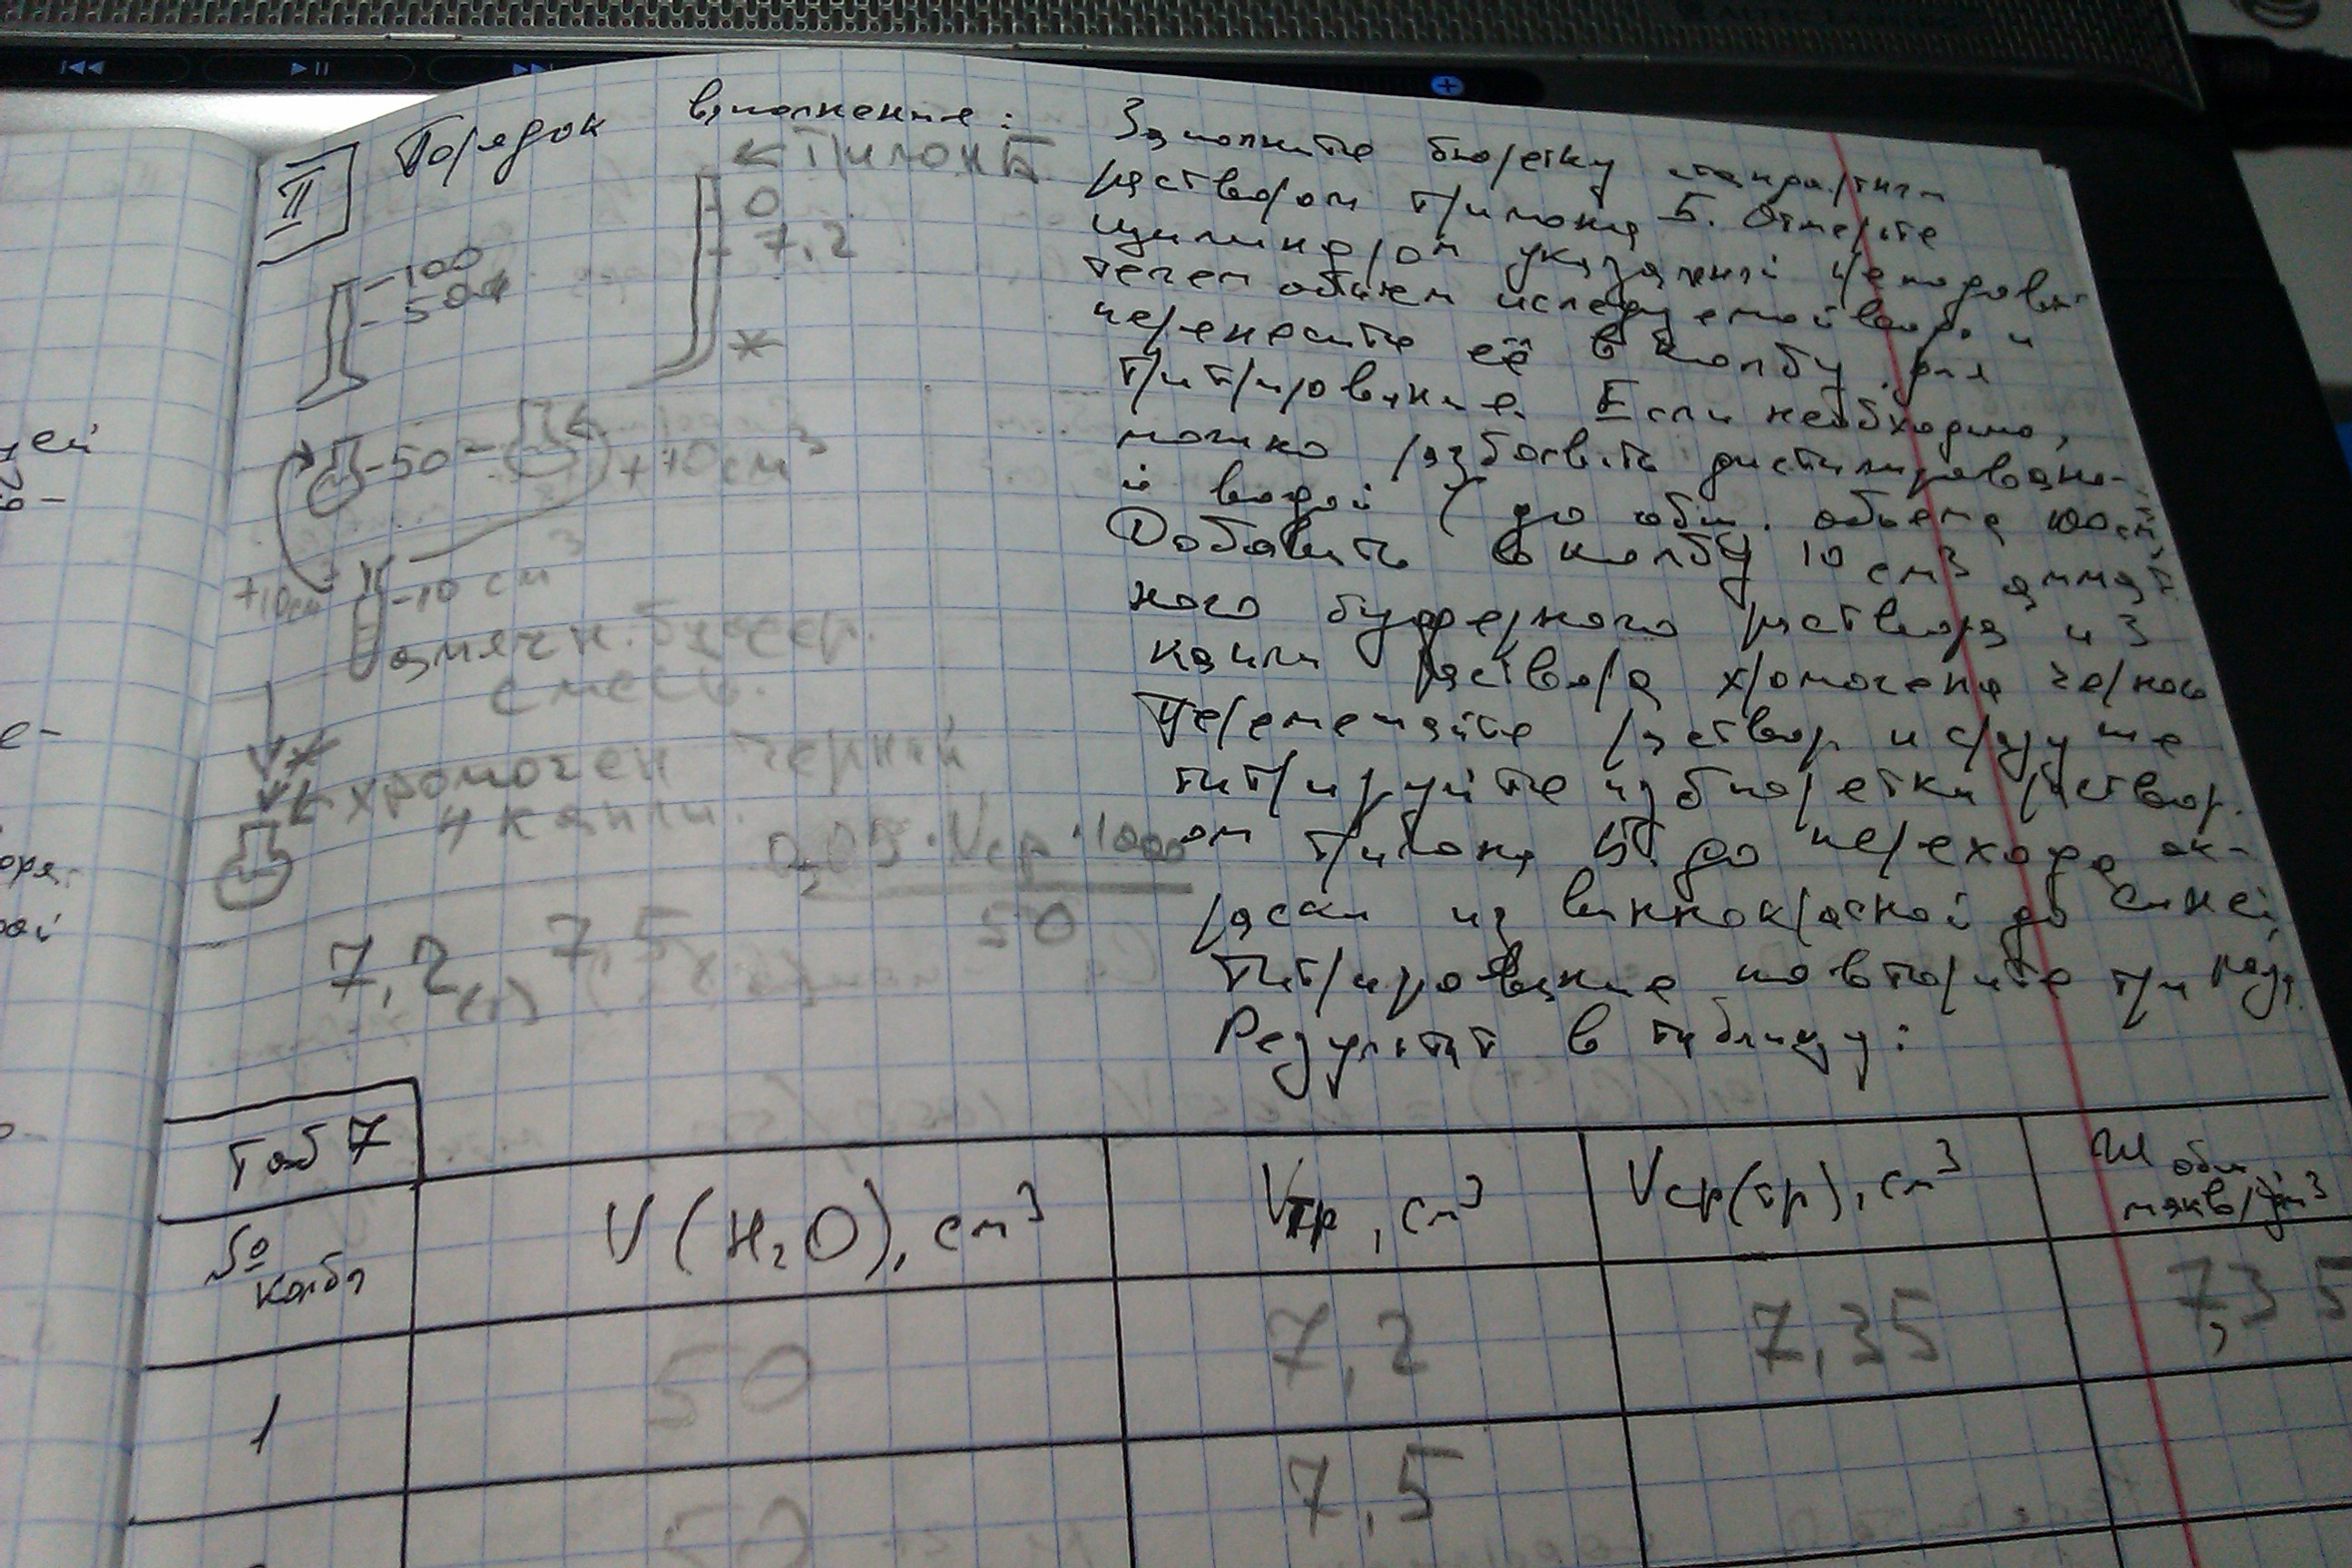 II Порядок выполнение:
← Трилон Б
0
7,2
100
50
*
50
+10 см³
+10см³
10 см³
амячн. буфер.
смесь.
*
← хромоген черный
4 капли.
0,05 · Vср · 1000
50
7,2 7,5
Заполните бюретку стандартным
раствором трилона Б. Отмерьте
цилиндром указанный преподова-
телем объем исследуемой воды и
перенесите её в колбу для
титрирования. Если необходимо,
можно разбавить дистилировано-
й водой (до общ. объема 100см³
Добавить в колбу 10 см³ аммия
ного буферного раствора и 3
капли раствора хромогена черного
Перемешайте раствор и сразу же
титрируйте из бюретки раствор.
ом трилона Б до перехода ок-
раски из виннокрасной до синей
Титрирование повторите три раза.
Результат в таблицу:
Таб 7
№ колбы
V(H₂O), см³
Vтр, см³
Vср(тр), см³
Ж общ мэкв/дм³
1
50
7,2
7,35
7,35
50
7,5
ей
е-
оря.
ой